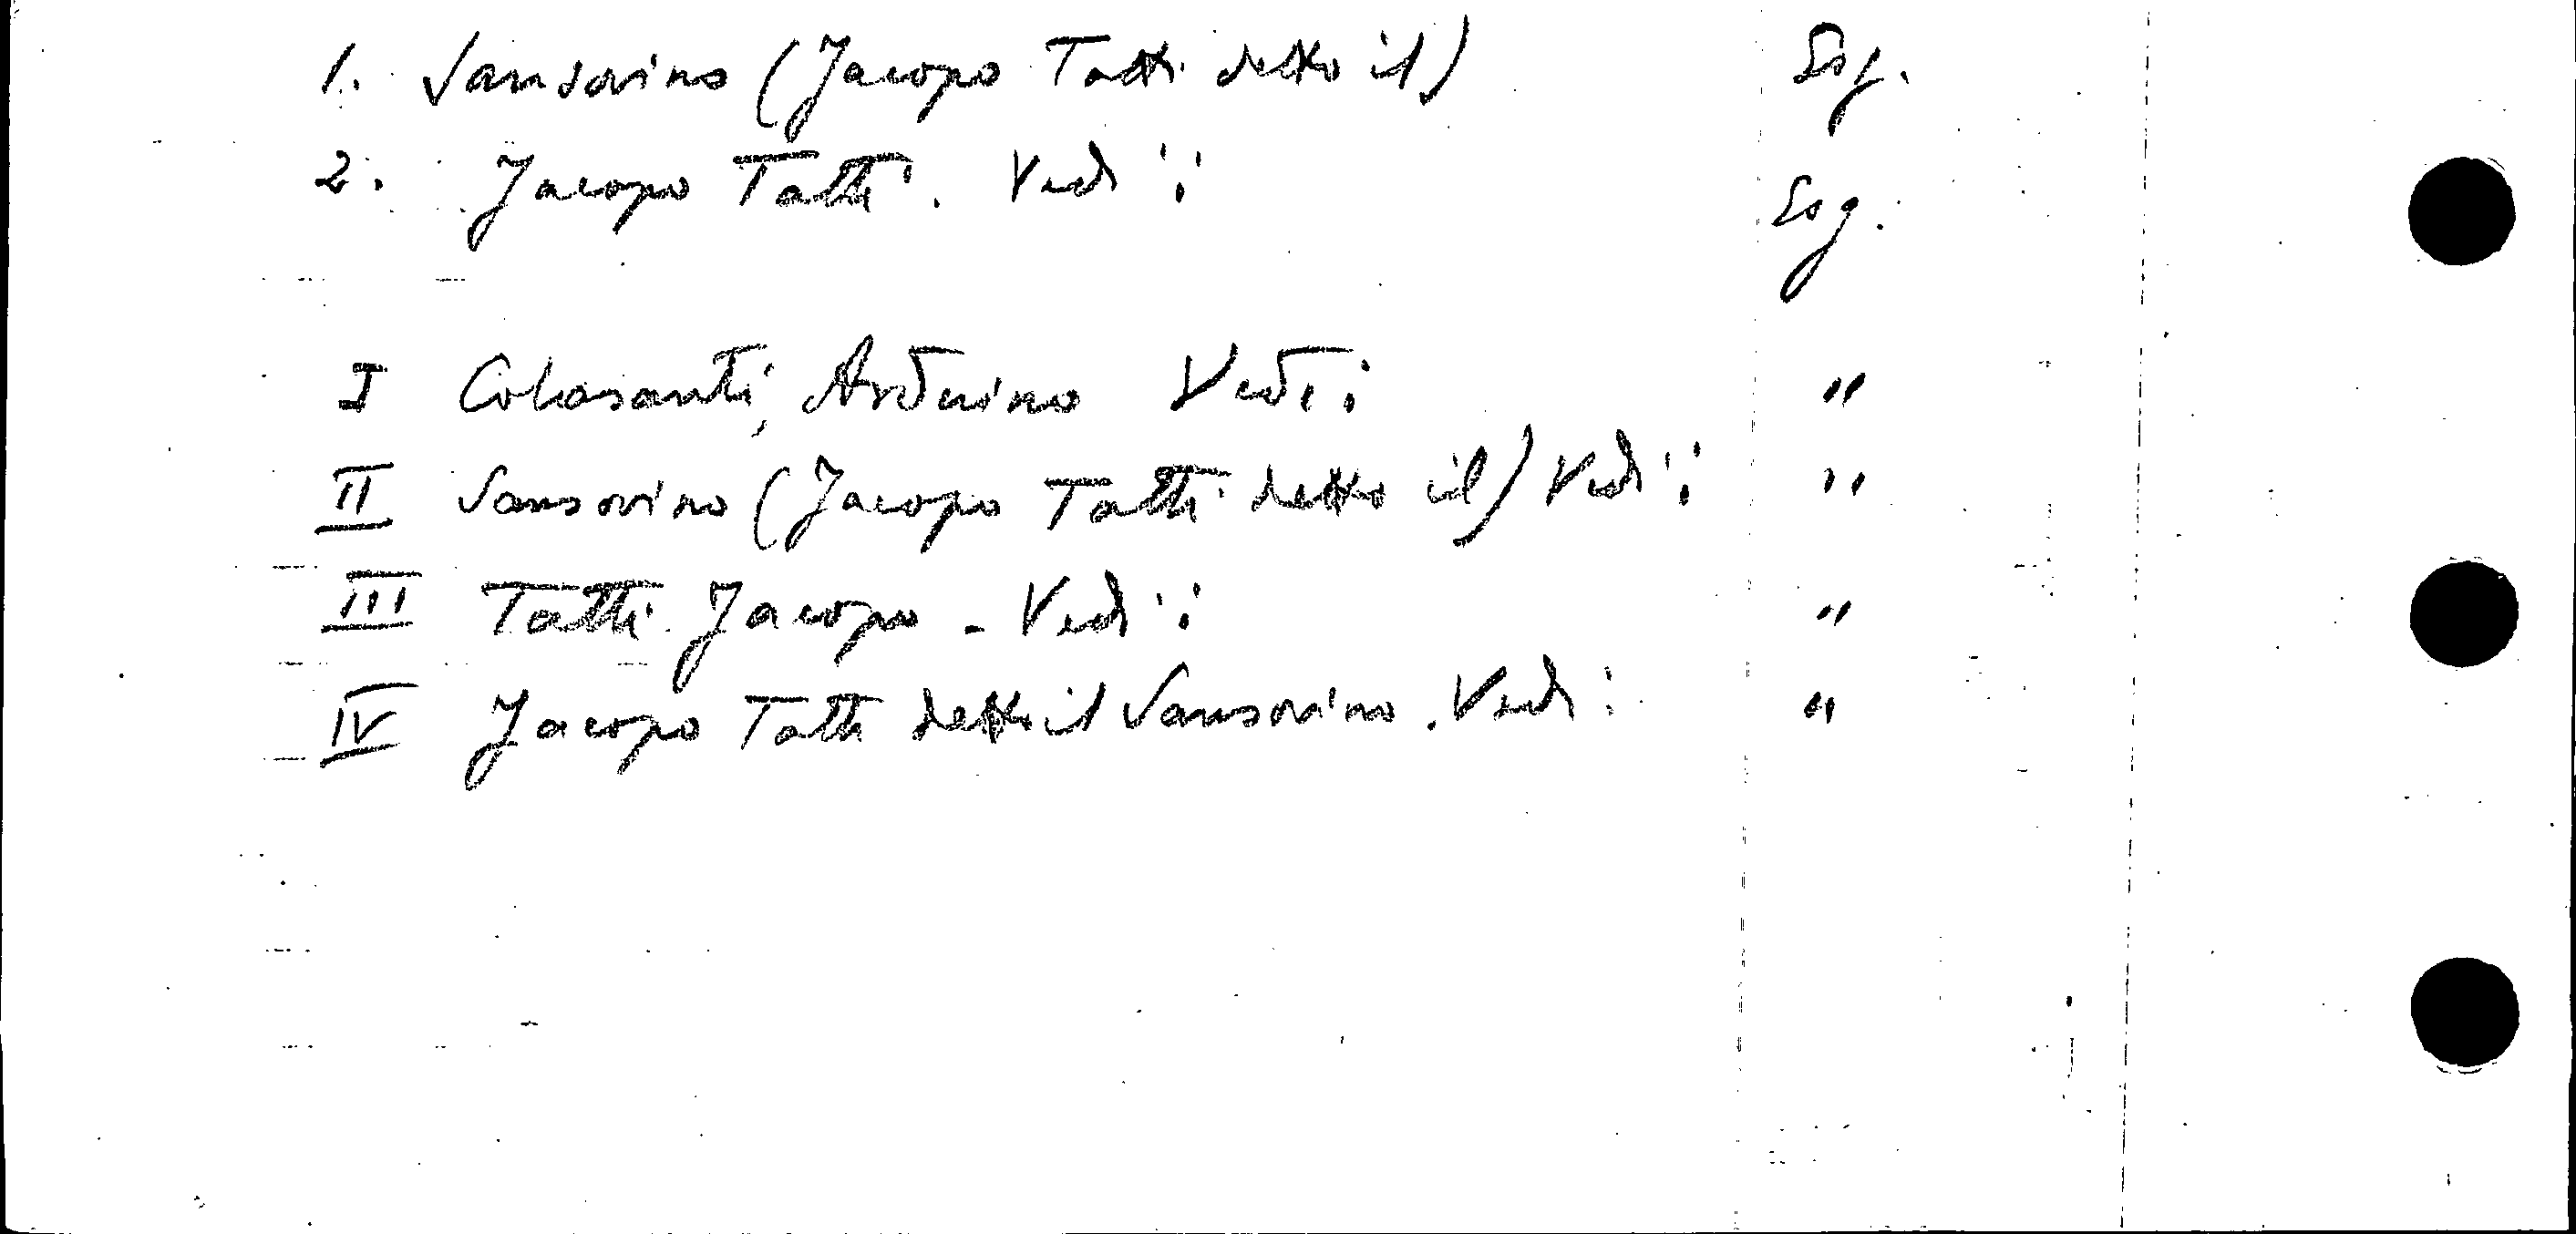 1. Sansovino (Jacopo Tatti detto il) Esg.
2. Jacopo Tatti. Vedi: Esg.
I Colasanti, Arduino Vedi: "
II Sansovino (Jacopo Tatti detto il) Vedi: "
III Tatti Jacopo - Vedi: "
IV Jacopo Tatti detto il Sansovino. Vedi: "